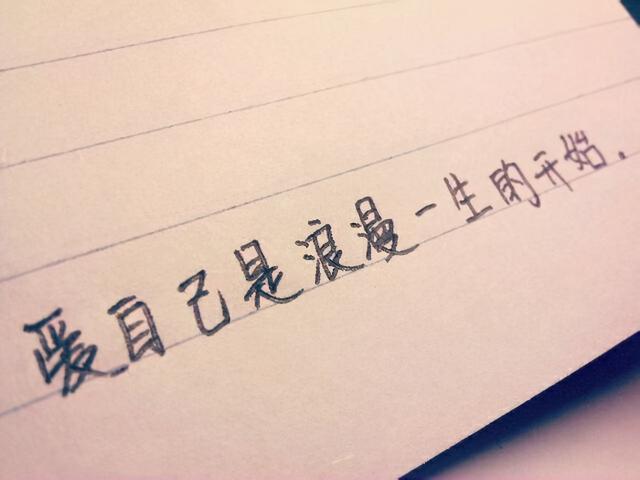 爱自己是浪漫一生的开始.